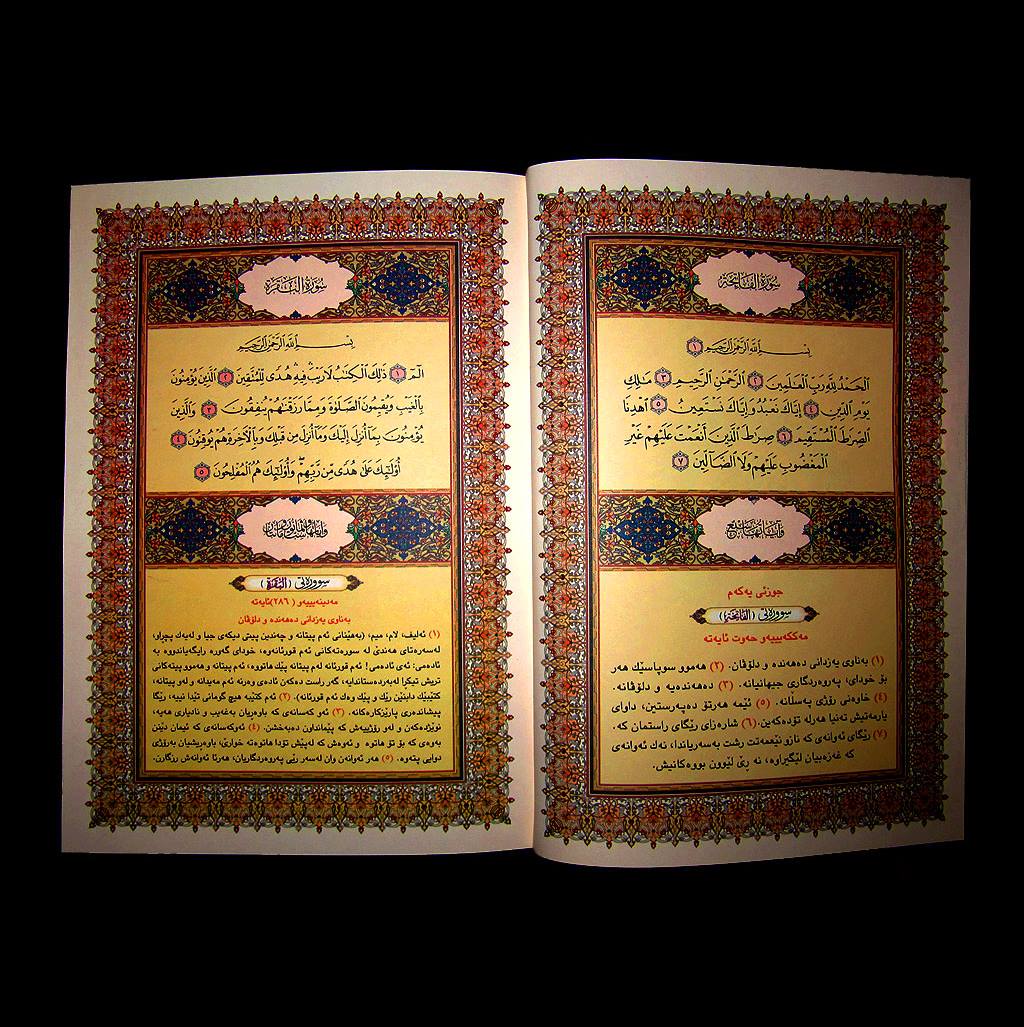 سُورَةُ الفَاتِحَةِ
بِسْمِ ٱللَّهِ ٱلرَّحْمَٰنِ ٱلرَّحِيمِ ١
ٱلْحَمْدُ لِلَّهِ رَبِّ ٱلْعَٰلَمِينَ ٢ ٱلرَّحْمَٰنِ ٱلرَّحِيمِ ٣ مَٰلِكِ
يَوْمِ ٱلدِّينِ ٤ إِيَّاكَ نَعْبُدُ وَإِيَّاكَ نَسْتَعِينُ ٥ ٱهْدِنَا
ٱلصِّرَٰطَ ٱلْمُسْتَقِيمَ ٦ صِرَٰطَ ٱلَّذِينَ أَنْعَمْتَ عَلَيْهِمْ غَيْرِ
ٱلْمَغْضُوبِ عَلَيْهِمْ وَلَا ٱلضَّآلِّينَ ٧
وَآيَاتُهَا سَبْعٌ
جوزئی یەکەم
سوورەتی (الفاتحة)
مەککەیییەو حەوت ئایەتە
(١) بەناوی یەزدانی دەهەندە و دلۆڤان. (٢) هەموو سوپاسێك هەر
بۆ خودای، پەروەردگاری جیهانیانە. (٣) دەهەندەیە و دلۆڤانە.
(٤) خاوەنی رۆژی پەسڵانە. (٥) ئێمە هەرتۆ دەپەرستین، داوای
یارمەتیش تەنیا هەرلە تۆدەکەین. (٦) شارەزای رێگای راستمان کە.
(٧) رێگای ئەوانەی کە نازو نێعمەتت رشت بەسەریاندا، نەك ئەوانەی
کە غەزەبیان لێگیراوە، نە ڕێ لێوون بووەکانیش.
سُورَةُ البَقَرَةِ
بِسْمِ ٱللَّهِ ٱلرَّحْمَٰنِ ٱلرَّحِيمِ
الٓمٓ ١ ذَٰلِكَ ٱلْكِتَٰبُ لَا رَيْبَ فِيهِ هُدًى لِّلْمُتَّقِينَ ٢ ٱلَّذِينَ يُؤْمِنُونَ
بِٱلْغَيْبِ وَيُقِيمُونَ ٱلصَّلَوٰةَ وَمِمَّا رَزَقْنَٰهُمْ يُنفِقُونَ ٣ وَٱلَّذِينَ
يُؤْمِنُونَ بِمَآ أُنزِلَ إِلَيْكَ وَمَآ أُنزِلَ مِن قَبْلِكَ وَبِٱلْأَخِرَةِ هُمْ يُوقِنُونَ ٤
أُو۟لَٰٓئِكَ عَلَىٰ هُدًى مِّن رَّبِّهِمْ وَأُو۟لَٰٓئِكَ هُمُ ٱلْمُفْلِحُونَ ٥
سوورەتی (البقرة)
مەدینەیییەو (٢٨٦) ئایەتە
بەناوی یەزدانی دەهەندە و دلۆڤان
(١) ئەلیف، لام، میم، (بەهێنانی ئەم پیتانە و چەندین پیتی دیکەی جیا و لەیەك پچڕاو،
لەسەرەتای هەندێ لە سورەتەکانی ئەم قورئانەوە، خودای گەورە رایگەیاندووە بە
ئادەمی: ئەی ئادەمی! ئەم قورئانە لەم پیتانە پێك هاتووە، ئەم پیتانە و هەموو پیتەکانی
تریش تیکڕا لەبەردەستاندایە، گەر راست دەکەن ئادەی وەرنە ئەم مەیدانە و لەو پیتانە،
کتێبێك دابنێن رێك و پێك وەك ئەم قورئانە). (٢) ئەم کتێبە هیچ گومانی تێدا نییە، رێگا
پیشاندەری پارێزکارەکانە. (٣) ئەو کەسانەی کە باوەریان بەغەیب و نادیاری هەیە،
نوێژدەکەن و لەو رۆژییەش کە پێمانداون دەبەخشن. (٤) ئەوکەسانەی کە ئیمان دێنن
بەوەی کە بۆ تۆ هاتوە و ئەوەش کە لەپێش تۆدا هاتوەتە خوارێ، باوەریشیان بەرۆژی
دوایی پتەوە. (٥) هەر ئەوانەن وان لەسەر رێی پەروەردگاریان، هەرئا ئەوانەش رزگارن.